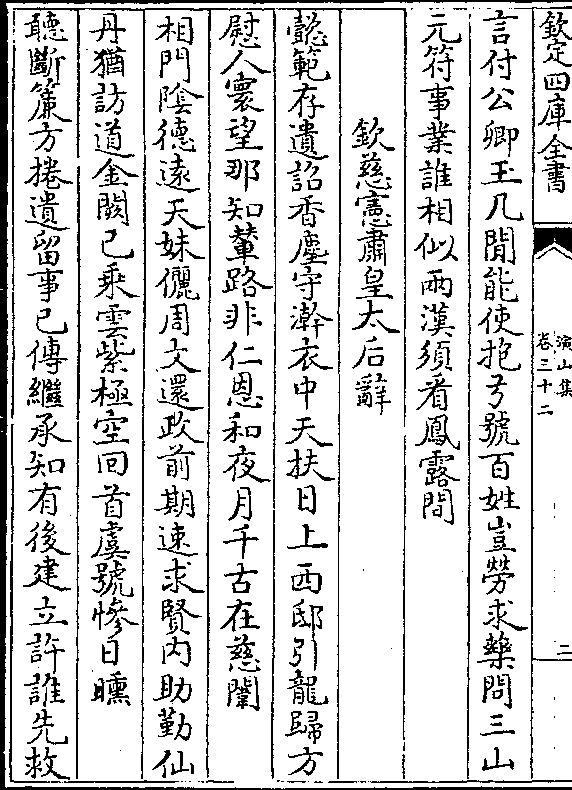 欽定四庫全書
演山集
卷三十二
二
言付公卿玉几閒能使抱弓號百姓豈勞求藥問三山
元符事業誰相似兩漢須看鳳露間
欽慈憲肅皇太后辭
懿範存遺詔香塵守澣衣中天扶日上西邸引龍歸方
慰人寰望那知輦路非仁恩和夜月千古在慈闈
相門陰德遠天妹儷周文還政前期速求賢内助勤仙
丹猶訪道金闕已乗雲紫極空回首虞號慘日曛
聽斷簾方捲遺留事已傳繼承知有後建立許誰先救